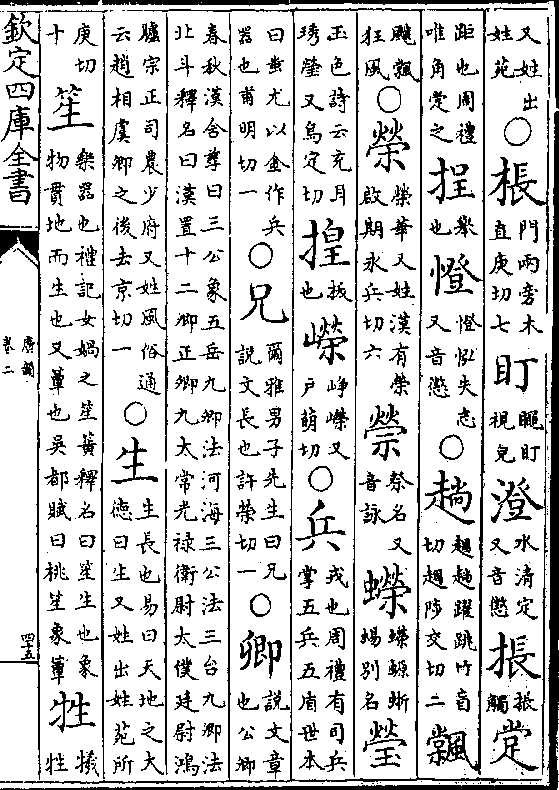 又姓出姓苑○棖門兩旁木直庚切七盯瞴盯視皃澄水清定又音懲掁掁觸㲂
距也周禮唯角㲂之挰舉也憕憕㤥失志又音懲○趟趟趟躍跳竹盲切趟陟交切二䬝
飈䬝狂風○榮榮華又姓漢有榮啟期永兵切六禜祭名又音詠蠑蠑螈蜥蜴別名瑩
玉色詩云充耳琇瑩又烏定切揘拔也嶸崢嶸又戶萌切○兵戎也周禮有司兵掌五兵五盾世本
曰蚩尤以金作兵器也甫明切一○兄爾雅男子先生曰兄說文長也許榮切一○卿說文章也公卿
春秋漢含孶曰三公象五岳九卿法河海三公法三台九卿法北斗釋名曰漢置十二卿正卿九太常光祿衛尉太僕廷尉鴻
臚宗正司農少府又姓風俗通云趙相虞卿之後去京切一○生生長也易曰天地之大德曰生又姓出姓苑所
庚切十笙樂器也禮記女媧之笙簧釋名曰笙生也象物貫地而生也又簟也吳都賦曰桃笙象簟牲犧牲
欽定四庫全書
廣韻
卷二
四五